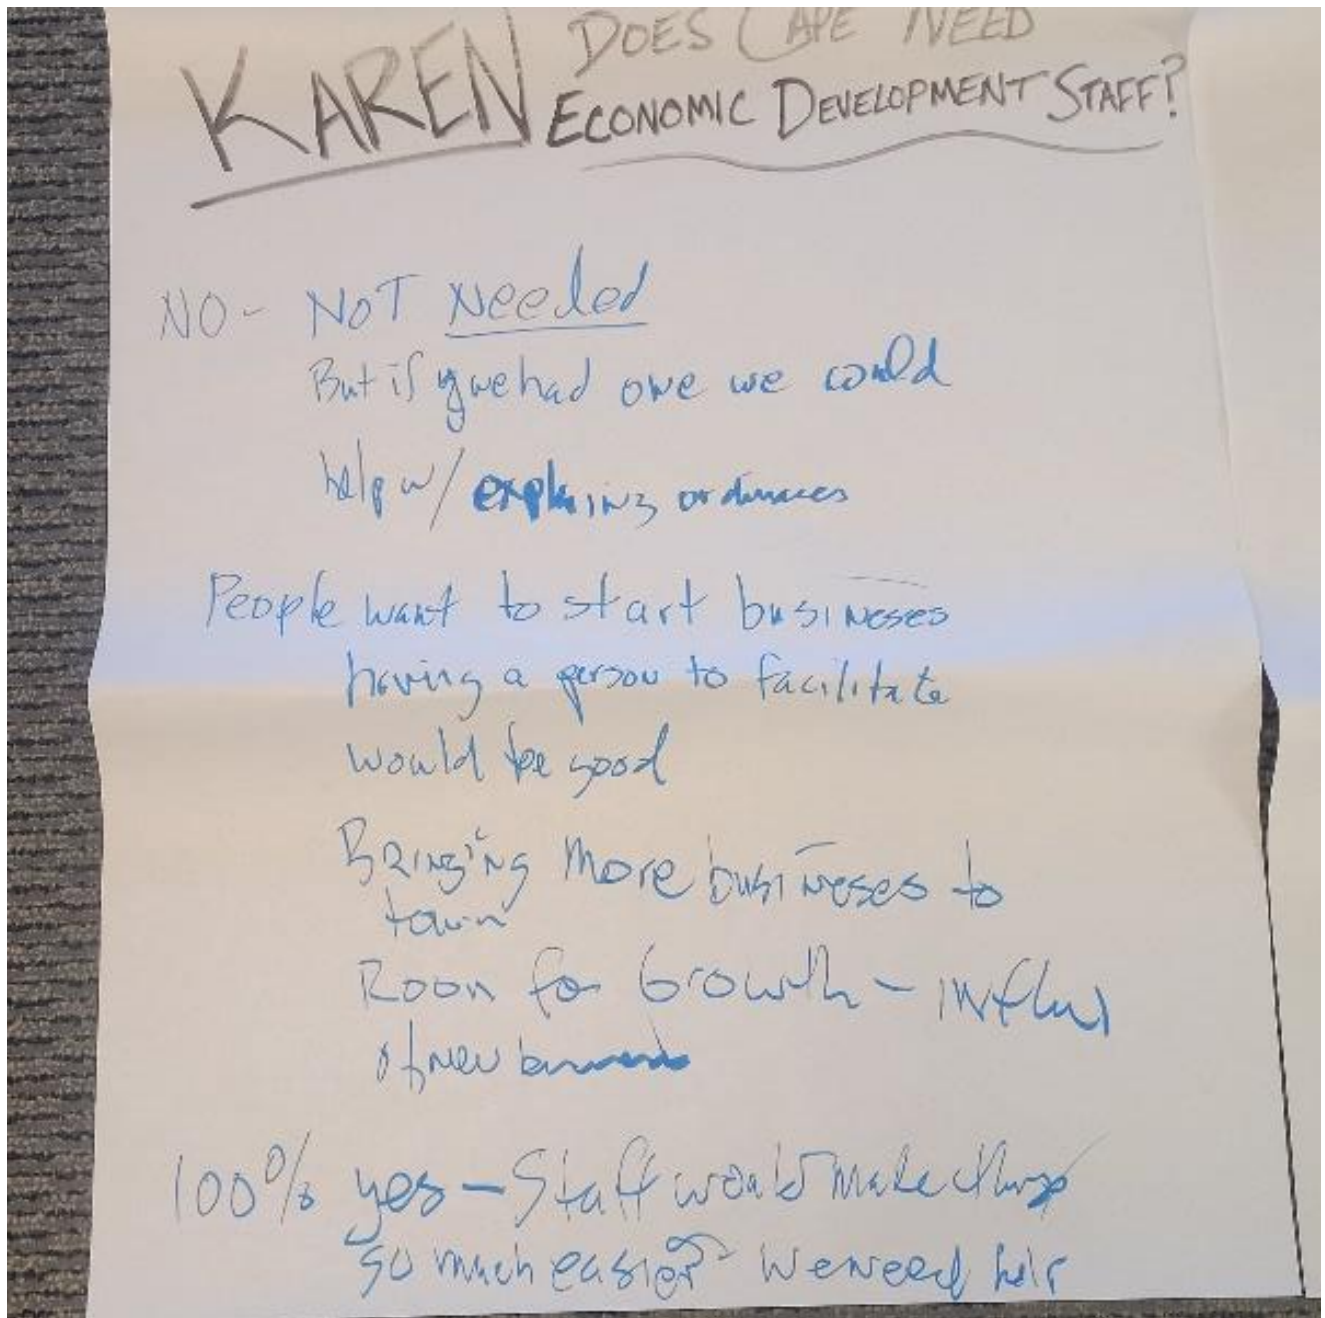 KAREN DOES CAPE NEED
ECONOMIC DEVELOPMENT STAFF?
NO - NOT Needed
But if we had one we could
help w/ explaining ordinances
People want to start businesses
having a person to facilitate
would be good
Bringing more busineses to
town
Room for Growth - influx
of new
100% yes - Staff would make things
so much easier We need help